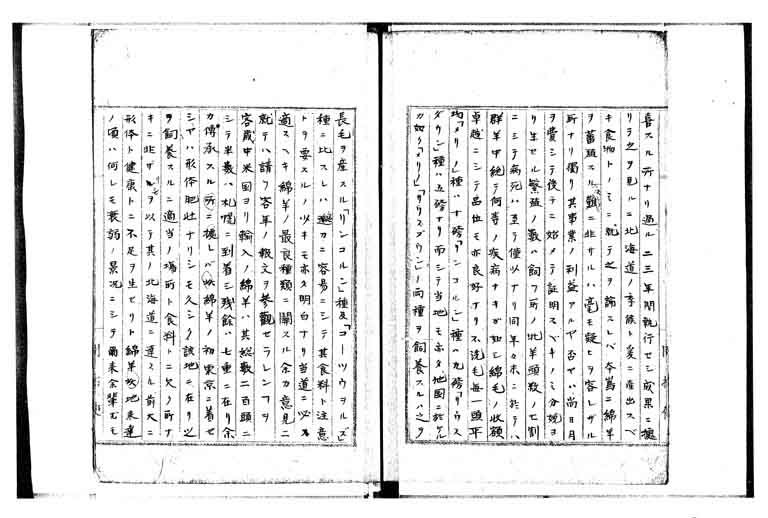 喜スル所ナリ過ル二三年間執行セシ成果ニ據
リテ之ヲ見ルニ北海道ノ季候ト爰ニ産出スベ
キ食物トノミニ就テ之ヲ論スレバ本島ニ綿羊
ヲ蓄殖スルノ難ニ非サルハ毫モ疑ヒヲ容レザル
所ナリ獨リ其事業ノ利益アルヤ否ヤハ尚日月
ヲ費シテ後チニ始メテ証明スベキノミ分娩ヨ
リ生セル繁殖ノ數ハ飼フ所ノ牝羊頭數ノ七割
ニシテ病死ハ至テ僅少ナリ同年々末ニ於テハ
群羊中絶テ何等ノ疾病ナキガ如シ綿毛ノ收額
卓越ニシテ品位モ亦良好ナリ不洗毛毎一頭平
均「メリノ」種ハ十磅「リンコルン」種ハ九磅「サウス
ダウン」種ハ五磅ナリ而シテ当地モホタ地圖ニ於ケル
カ如ク「メリノ」「サウスダウン」ノ両種ヲ飼養スルハ之ヲ
長毛ヲ産スル「リンコルン」種及「コーツウヲルズ」
種ニ比スレハ遙カニ容易ニシテ其食料ト注意
トヲ要スルノ少キモホタ明白ナリ当道ニ必
適スヘキ綿羊ノ最良種類ニ關スル余カ意見ニ
就テハ請フ客年ノ報文ヲ参觀セラレンヿヲ
客歳中米国ヨリ輸入ノ綿羊ハ其総數二百頭ニ
シテ半數ハ札幌ニ到着シ残餘ハ七重ニ在リ余
カ傳承スル所ニ據レバ此綿羊ノ初東京ニ着セ
シヤハ形体肥壮ナリシモ久シク該地ニ在リ之
ヲ飼養スルニ適当ノ場所ト食料トニ欠ク所ナ
キニ非サルヲ以テ其ノ北海道ニ達スル前大ニ
形体ト健康トニ不足ヲ生セリト綿羊此地来達
ノ頃ハ何レモ衰弱ノ景况ニシテ爾来余輩尤モ